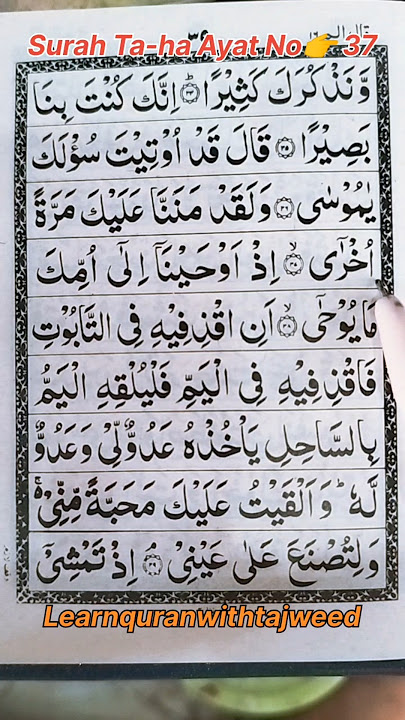 قال الم ١٦
٣٦
Surah Ta-ha Ayat No👉37
وَّنَذْكُرَكَ كَثِيْرًا ﴿۳۴﴾ اِنَّكَ كُنْتَ بِنَا
بَصِيْرًا ﴿۳۵﴾ قَالَ قَدْ اُوْتِيْتَ سُؤْلَكَ
يٰمُوْسٰى ﴿۳۶﴾ وَلَقَدْ مَنَنَّا عَلَيْكَ مَرَّةً
اُخْرٰٓى ﴿۳۷﴾ اِذْ اَوْحَيْنَآ اِلٰٓى اُمِّكَ
مَا يُوْحٰٓى ﴿۳۸﴾ اَنِ اقْذِفِيْهِ فِى التَّابُوْتِ
فَاقْذِفِيْهِ فِى الْيَمِّ فَلْيُلْقِهِ الْيَمُّ
بِالسَّاحِلِ يَاْخُذْهُ عَدُوٌّ لِّىْ وَعَدُوٌّ
لَّهٗ ؕ وَاَلْقَيْتُ عَلَيْكَ مَحَبَّةً مِّنِّىْ ۚ
وَلِتُصْنَعَ عَلٰى عَيْنِىْ ﴿۳۹﴾ اِذْ تَمْشِىْٓ
Learnquranwithtajweed